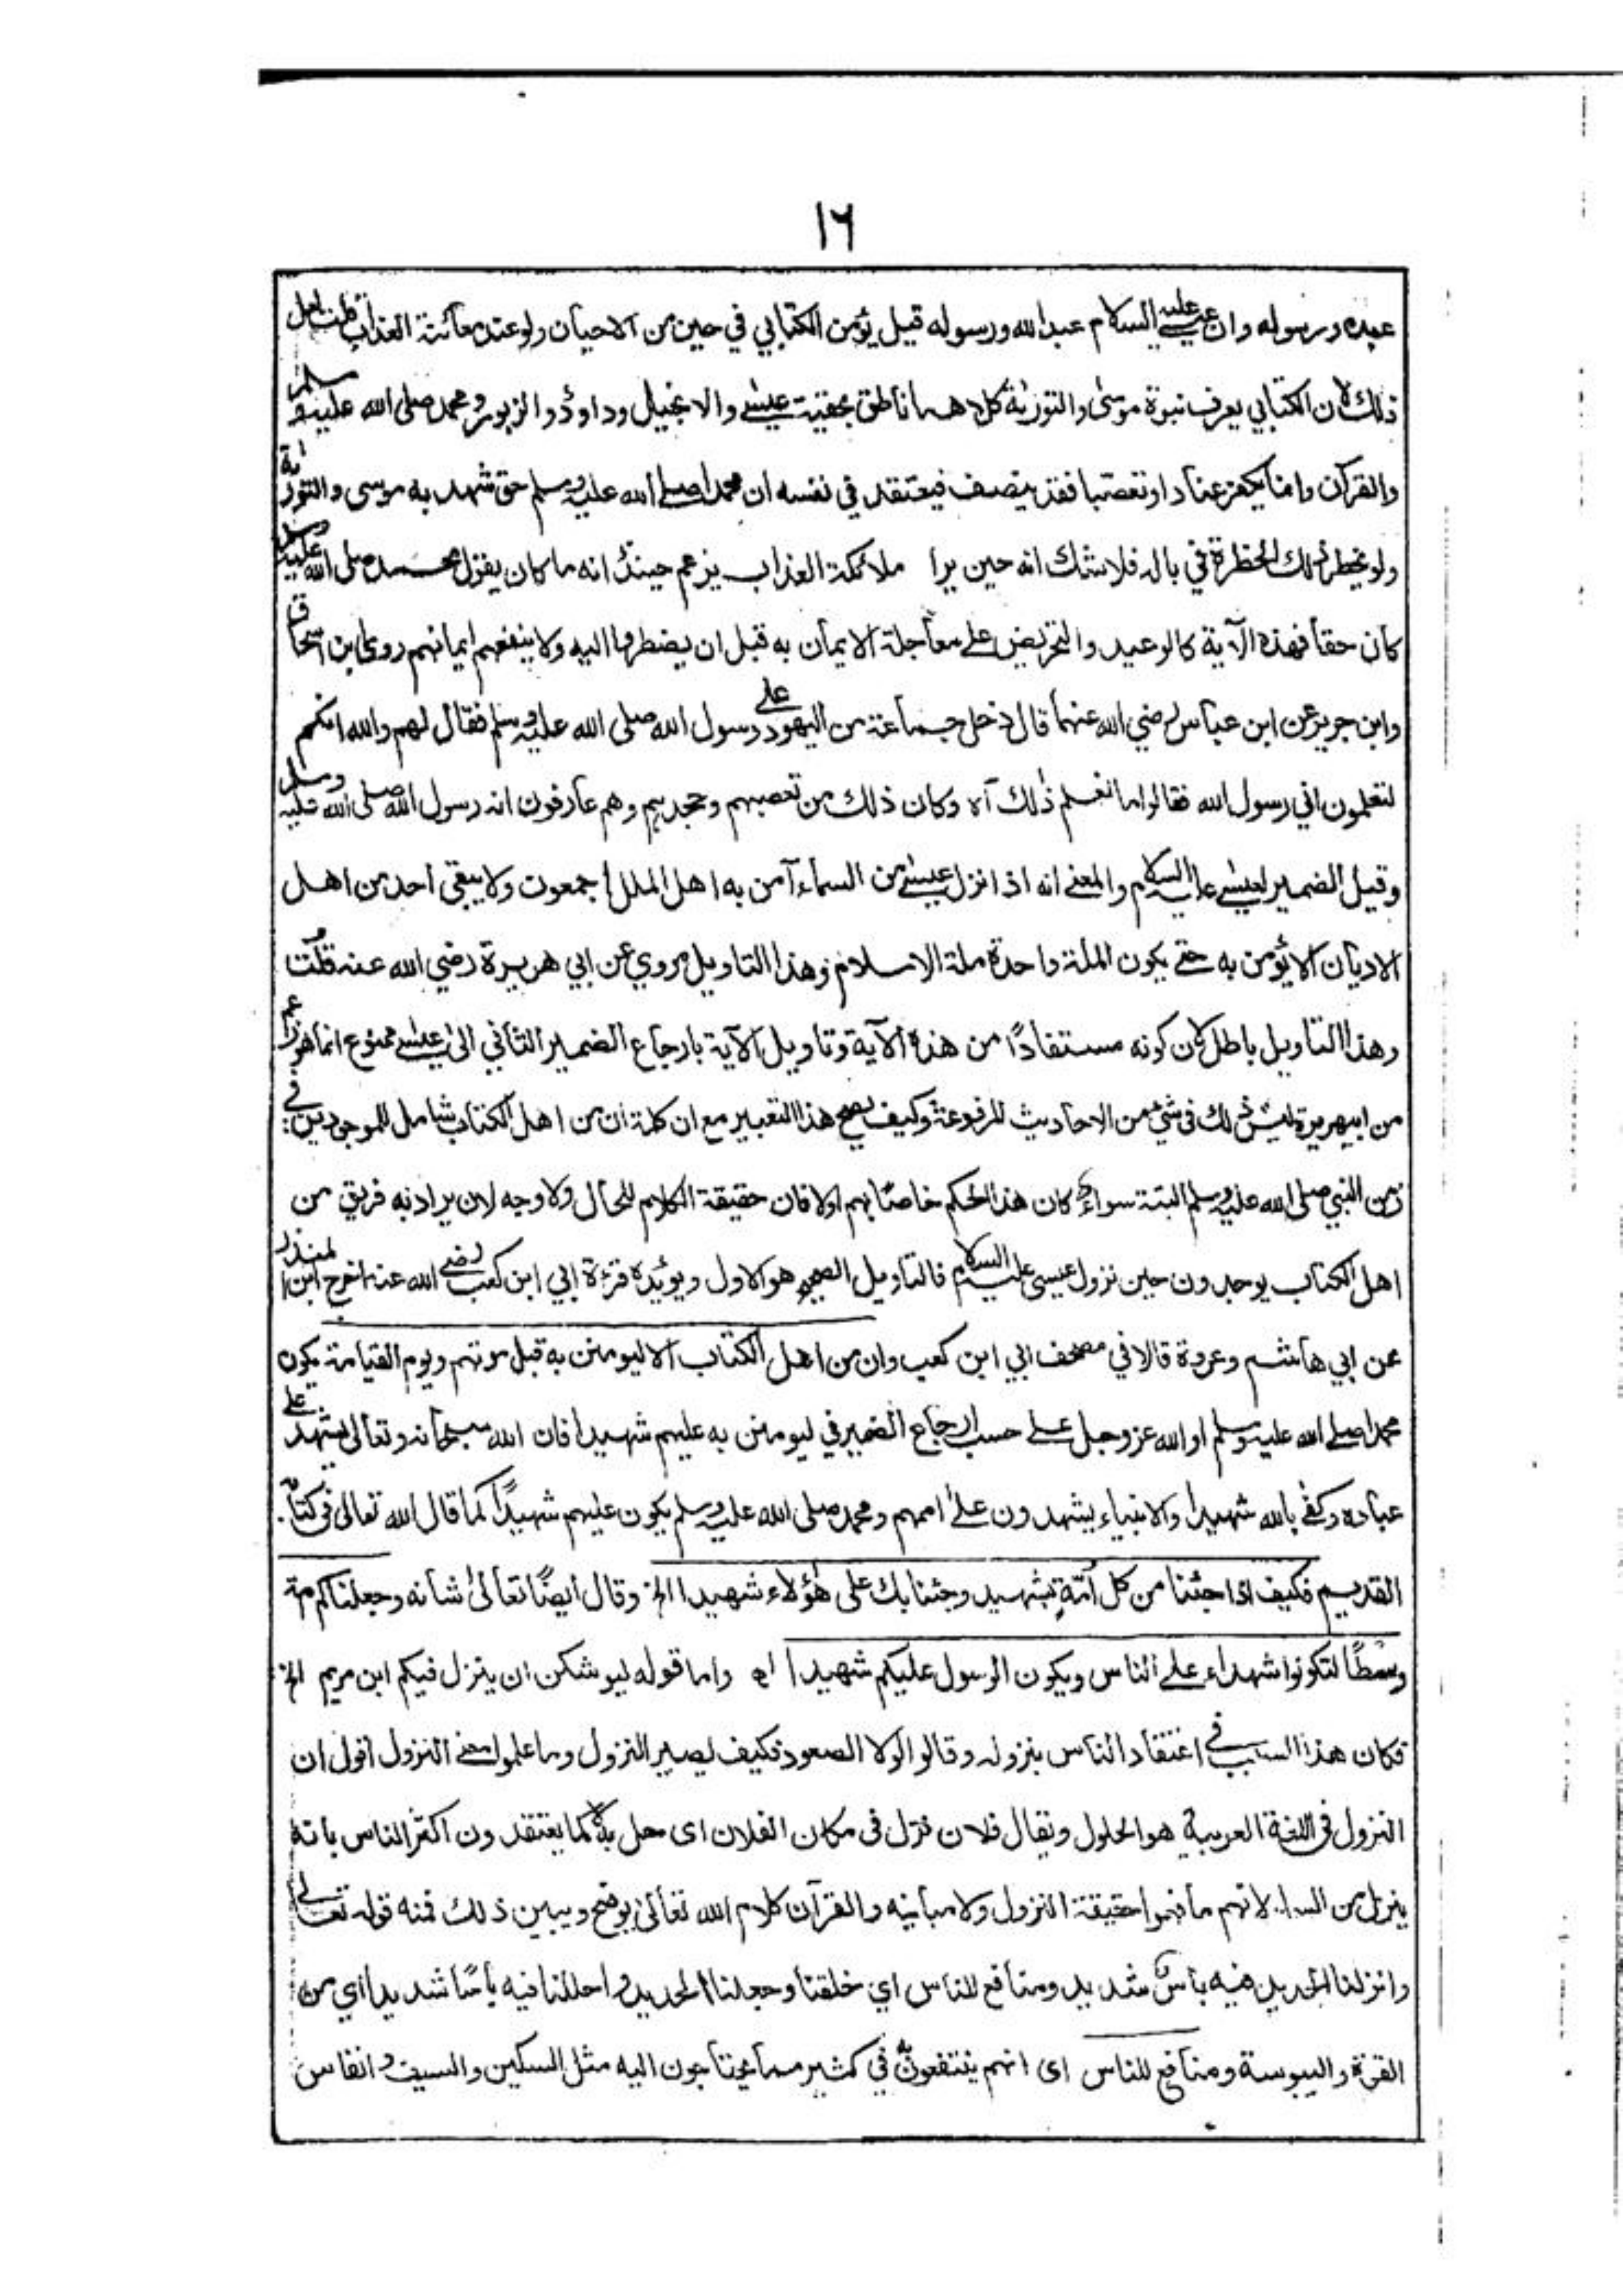 ١٦
عبده ورسوله وان عيسى عليه السلام عبد الله ورسوله قيل يؤمن الكتابي في حين من الاحيان ولو عند معائنة العذاب قلت لعل
ذلك لان الكتابي يعرف نبوة موسى والتورىة كلاهما ناطق بحقيت عيسى والانجيل وداوٗد والزبور ومحمد صلى الله عليه وسلم
والقرآن وانما يكفر عنادا وتعصبا فقد ينصف فيعتقد في نفسه ان محمدا صلے الله عليه وسلم حق شهد به موسى والتورىة
ولو يخطر تلك الخطرة في باله فلا شك انه حين يرا ملائكة العذاب يزعم حينئذ انه ما كان يقول محمد صلى الله عليه وسلم
كان حقا فهذه الآية كالوعيد والتحريض على معاجلة الايمان به قبل ان يضطروا اليه ولا ينفعهم ايمانهم روى ابن اسحاق
وابن جرير عن ابن عباس رضي الله عنهما قال دخل جماعة من اليهود على رسول الله صلى الله عليه وسلم فقال لهم والله انكم
لتعلمون اني رسول الله فقالوا ما نعلم ذلك آه وكان ذلك من تعصبهم وجحدهم وهم عارفون انه رسول الله صلى الله عليه وسلم
وقيل الضمير لعيسى عليه السلام والمعنے انه اذا نزل عيسے من السماء آمن به اهل الملل اجمعون ولا يبقى احد من اهل
الاديان الا يؤمن به حتے يكون الملة واحدة ملة الاسلام وهذا التاويل مروي عن ابي هريرة رضي الله عنه قلت
وهذا التاويل باطل كان كونه مستفادًا من هذه الآية وتاويل الآية بارجاع الضمير الثاني الى عيسے ممنوع انما هو زعم
من ابيهريرة ليس ذلك في شئ من الاحاديث المرفوعة وكيف يصح هذا التعبير مع ان كلمة ان من اهل الكتاب شامل للموجودين في
زمن النبي صلى الله عليه وسلم البتة سواء كان هذا الحكم خاصًا بهم اولا فان حقيقة الكلام للحال ولا وجه لان يراد به فريق من
اهل الكتاب يوجدون حين نزول عيسى عليه السلام فالتاويل الصحيح هو الاول ويؤيده قرءة ابي ابن كعب رضي الله عنه اخرج ابن المنذر
عن ابي هاشم وعروة قالا في مصحف ابي ابن كعب وان من اهل الكتاب الا ليومنن به قبل موتهم ويوم القيامة يكون
محمدا صلے الله عليه وسلم او الله عز وجل علے حسب ارجاع الضمير في ليومنن به عليهم شهيدا فان الله سبحانه وتعالى يشهد على
عباده وكفے بالله شهيدا والانبياء يشهدون على اممهم ومحمد صلى الله عليه وسلم يكون عليهم شهيدًا كما قال الله تعالى في كتابه
القديم فكيف اذا جئنا من كل امة بشهيد وجئنا بك على هؤلاء شهيدا الخ وقال ايضًا تعالىٰ شانه وجعلناكم امة
وسطًا لتكونوا شهداء على الناس ويكون الرسول عليكم شهيدا اھ واما قوله ليوشكن ان ينزل فيكم ابن مريم الخ
فكان هذا السبب في اعتقاد الناس بنزوله وقالوا لولا الصعود فكيف يصير النزول وما علموا معنے النزول اقول ان
النزول في اللغة العربية هو الحلول ويقال فلان نزل في مكان الفلان اى حل به لا كما يعتقدون اكثر الناس بانه
ينزل من السماء لانهم ما فهموا حقيقة النزول ولا مبانيه والقرآن كلام الله تعالىٰ يوضح ويبين ذلك فمنه قوله تعالے
وانزلنا الحديد فيه بأس شديد ومنافع للناس اي خلقنا وجعلنا الحديد واحللنا فيه باسًا شديدا اي من
القوة واليبوسة ومنافع للناس اى انهم ينتفعون به في كثير مما يحتاجون اليه مثل السكين والسيف والفاس